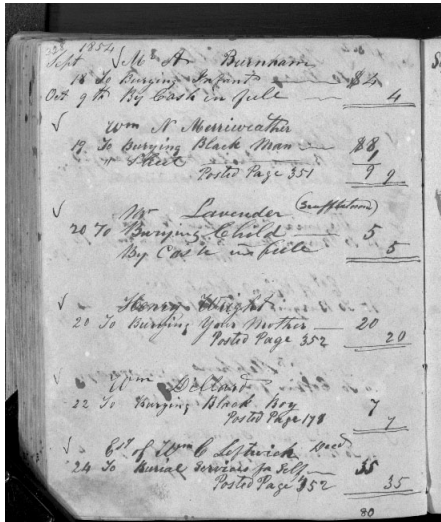 1854
Sept √ Mr A Burnham
18 To Burying Infant $4
Oct 9th By Cash in full 4
√ Wm N Merriweather
19 To Burying Black Man $8
" Sheet 1
Posted Page 351 9 9
√ Mr Lavender
20 To Burying Child 5
By Cash in full 5
√ Henry Wright
20 To Burying Your Mother 20
Posted Page 352 20
√ Wm Dillard
22 To Burying Black Boy 7
Posted Page 178 7
√ Est of Wm C Leftwich Decd
24 To Burial Services for Self 35
Posted Page 352 35
80